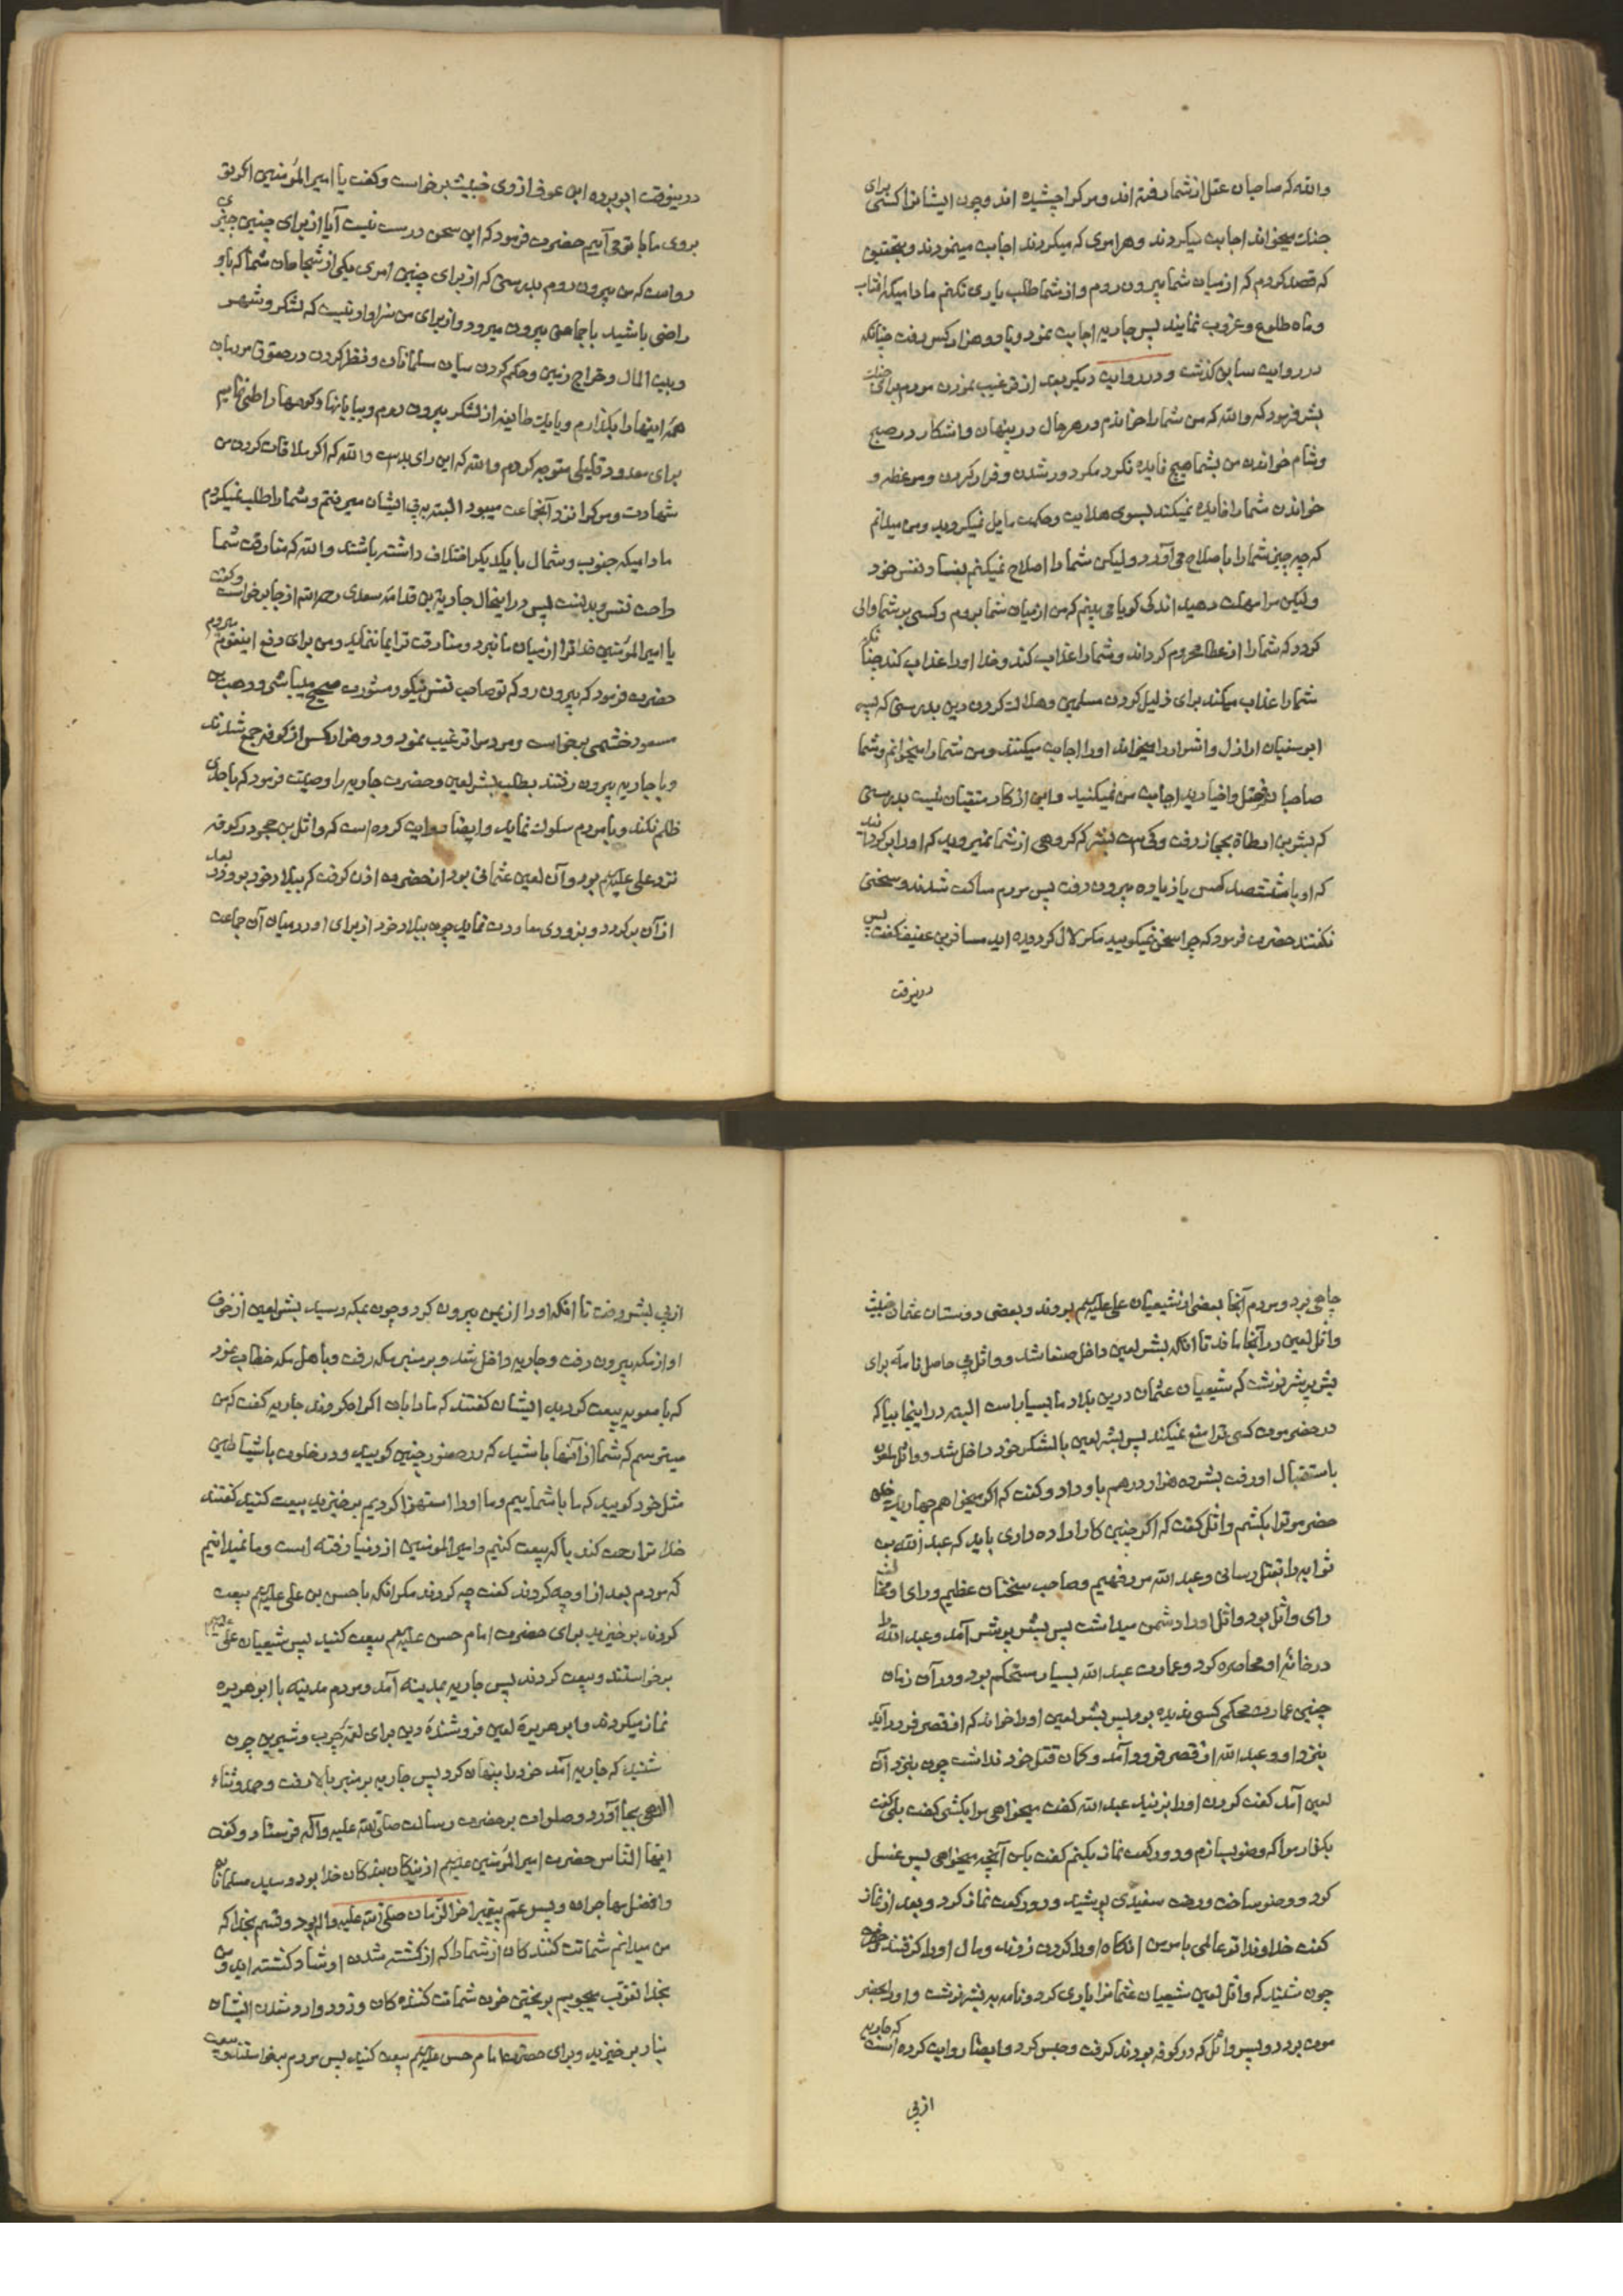 والله که صاحبان عقل از شما رفته اند و مرکرا چشیده اند و چون ایشانرا کسی برای
جنك میخواند اجابت میکردند و هر امری که میکردند اجابت مینمودند و بتحقیق
که قصد کردم که از میان شما بیرون روم و از شما طلب یاری نکنم مادامیکه افتاب
و ماه طلوع و غروب نمایند پس جاریه اجابت نمود و با دو هزار کس رفت چنانکه
در روایت سابق کذشت و در روایت دیکر بعد از ترغیب نمودن مردم برای جنك
بشر فرمود که والله که من شما را خواندم در هر حال در پنهان و اشکار در صبح
و شام خواندن من بشما هیچ فایده نکرد مکر دور شدن و فرار کردن و موعظه و
خواندن شما را فایده نمیکند بسوی هدایت و حکمت مایل نمیکردید و من میدانم
که چه چیز شما را باصلاح می آورد و لیکن شما را اصلاح نمیکنم بفساد نفس خود
و لیکن مرا مهلت دهید اندکی کویا می بینم که من از میان شما بروم و کسی بر شما والی
کردد که شما را از عطا محروم کرداند و شما را عذاب کند و خدا او را عذاب کند چنانکه
شما را عذاب میکند برای ذلیل کردن مسلمین و هلاك کردن دین بدرستی که پسر
ابو سفیان اراذل و اشرار را میخواند او را اجابت میکنند و من شما را میخوانم و شما
صاحبان عقل و اخیارید اجابت من نمیکنید و این از کار متقیان نیست بدرستی
که بشر بن ارطاة بحجاز رفت و کیست بشر که کروهی از شما نمیروید که او را برکردانند
که او با ششصد کس یا زیاده بیرون رفت پس مردم ساکت شدند و سخنی
نکفتند حضرت فرمود که چرا سخن نمیکویید مکر لال کردیده اید مسافر بن عفیف کفت پس
درینوقت
درینوقت ابو برده ابن عوف ازدی خبیث برخواست و کفت یا امیرالمؤمنین اکر تو
بروی ما با تو می آییم حضرت فرمود که این سخن درست نیست آیا از برای چنین چیزی
رواست که من بیرون روم بدرستی که از برای چنین امری یکی از شجاعان شما که باو
راضی باشید با جماعتی بیرون میرود و از برای من سزاوار نیست که لشکر و شهر
و بیت المال و خراج زمین و حکم کردن میان مسلمانان و نظر کردن در حقوق مردمان
همه اینها را بکذارم و با یك طایفه از لشکر بیرون روم و بیابانها و کوهها را طی نمایم
برای معدود قلیلی متوجه کردم والله که این رای بدیست والله که اکر ملاقات کردن من
شهادت و مرکرا نزد آنجماعت میبود البته بپی ایشان میرفتم و شما را طلب نمیکردم
مادامیکه جنوب و شمال با یکدیکر اختلاف داشته باشند والله که مفارقت شما
راحت نفس و بدنست پس در اینحال جاریة بن قدامه سعدی رحمه الله از جا برخواست و کفت
یا امیرالمؤمنین خدا ترا از میان ما نبرد و مفارقت ترا بما ننماید و من برای دفع اینقوم میروم
حضرت فرمود که بیرون رو که تو صاحب نفس نیکو و مشورت صحیح میباشی و وهب بن
مسعود خثعمی برخواست و مردمرا ترغیب نمود و دو هزار کس از کوفه جمع شدند
و با جاریه بیرون رفتند بطلب بشر لعین و حضرت جاریه را وصیت فرمود که با احدی
ظلم نکند و با مردم سلوك نماید و ایضا روایت کرده است که وائل بن حجر در کوفه
نزد علی علیه السلم بود و آن لعین عثمانی بود از حضرت اذن کرفت که ببلاد خود برود و بعد
از آن برکردد و بزودی معاودت نماید چون ببلاد خود از برای او در میان آن جماعت
جاهی بود و مردم آنجا بعضی از شیعیان علی علیه السلم بودند و بعضی دوستان عثمان خبیث
وائل لعین در آنجا ماند تا آنکه بشر لعین داخل صنعا شد و وائل بی حاصل نامه برای
بشر بر شر نوشت که شیعیان عثمان درین بلاد ما بسیار است البته در اینجا بیا که
در حضرموت کسی ترا منع نمیکند پس بشر لعین با لشکر خود داخل شد و وائل ملعون
باستقبال او رفت بشر ده هزار درهم باو داد و کفت که اکر میخواهم چهار یك خلق
حضرموترا بکشم وائل کفت که اکر چنین کار اراده داری باید که عبد الله بن
ثوابه را بقتل رسانی و عبد الله مرد فهیم و صاحب سخنان عظیم و رای او مخالف
رای وائل بود وائل او را دشمن میداشت پس بشر بر شر آمد و عبد الله را
در خانه او محاصره کرد و عمارت عبد الله بسیار مستحکم بود و در آن زمان
چنین عمارت محکمی کسی ندیده بود پس بشر لعین او را خواند که از قصر فرود آید
بنزد او و عبد الله از قصر فرود آمد و کمان قتل خود نداشت چون بنزد آن
لعین آمد کفت کردن او را بزنید عبد الله کفت میخواهی مرا بکشی کفت بلی کفت
بکذار مرا که وضو بسازم و دو رکعت نماز بکنم کفت بکن آنچه میخواهی پس غسل
کرد و وضو ساخت و رخت سفیدی پوشید و دو رکعت نماز کرد و بعد از نماز
کفت خداوندا تو عالمی بامر من انکاه او را کردن زدند و مال او را کرفتند و حضرت
چون شنید که وائل لعین شیعیان عثمانرا یاری کرد و نامه به بشر نوشت و او را بحضر
موت برد دو پسر وائل که در کوفه بودند کرفت و حبس کرد و ایضا روایت کرده است که جاریه
از پی
از پی بشر رفت تا آنکه او را از یمن بیرون کرد و چون بمکه رسید بشر لعین از خوف
او از مکه بیرون رفت و جاریه داخل شد و بر منبر مکه رفت و باهل مکه خطاب نمود
که با معویه بیعت کردید ایشان کفتند که ما را بان اکراه کردند جاریه کفت که من
میترسم که شما از آنها باشید که در حضور چنین کویید و در خلوت با شیاطین
مثل خود کویید که ما با شماییم و ما او را استهزا کردیم برخیزید بیعت کنید کفتند
خدا ترا رحمت کند با که بیعت کنیم و امیرالمومنین از دنیا رفته است و ما نمیدانیم
که مردم بعد از او چه کردند کفت چه کردند مکر آنکه با حسن بن علی علیه السلم بیعت
کردند برخیزید برای حضرت امام حسن علیه السلم بیعت کنید پس شیعیان علی علیه السلم
برخواستند و بیعت کردند پس جاریه بمدینه آمد و مردم مدینه با ابو هریره
نماز میکردند و ابو هریرهٔ لعین فروشندهٔ دین برای لقمهٔ چرب و شیرین چون
شنید که جاریه آمد خود را پنهان کرد پس جاریه بر منبر بالا رفت و حمد و ثناء
الهی بجا آورد و صلوات بر حضرت رسالت صلی الله علیه و آله فرستاد و کفت
ایها الناس حضرت امیرالمؤمنین علیه السلم از نیکان بندکان خدا بود و سید مسلمانان
و افضل مهاجران و پسر عم پیغمبر اخر الزمان صلی الله علیه و اله بود و قسم بخدا که
من میدانم شماتت کنندکان از شما را که از کشته شدن او شاد کشته اید و من
بخدا تقرب میجویم بریختن خون شماتت کننده کان و زود وارد شدن ایشان
بنار برخیزید و برای حضرت امام حسن علیه السلم بیعت کنید پس مردم برخواستند و بیعت